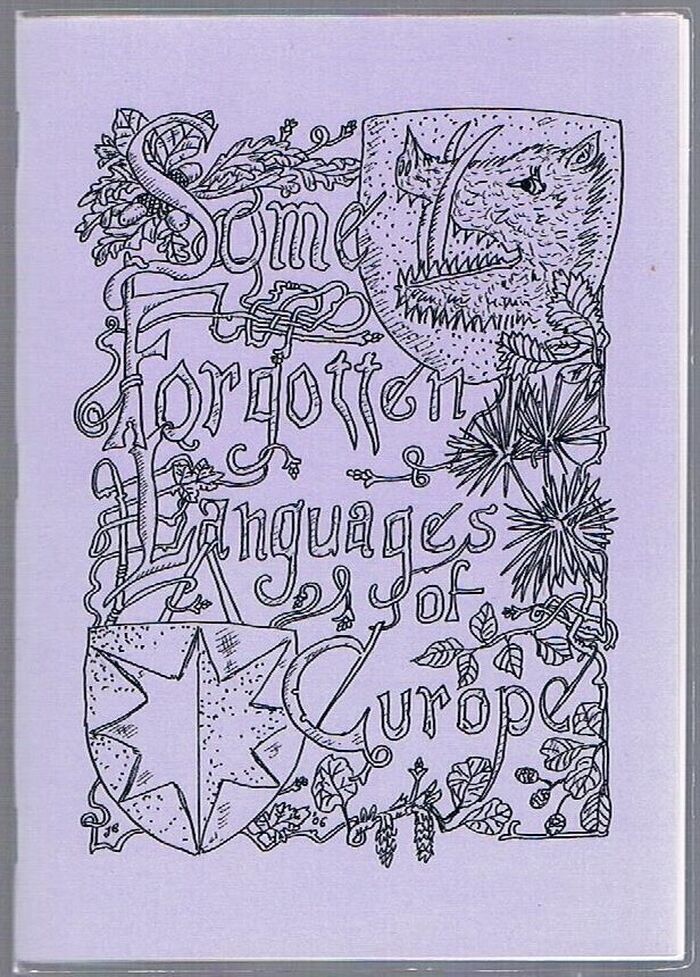 Some
Forgotten
Languages
of
Europe
JB
'06